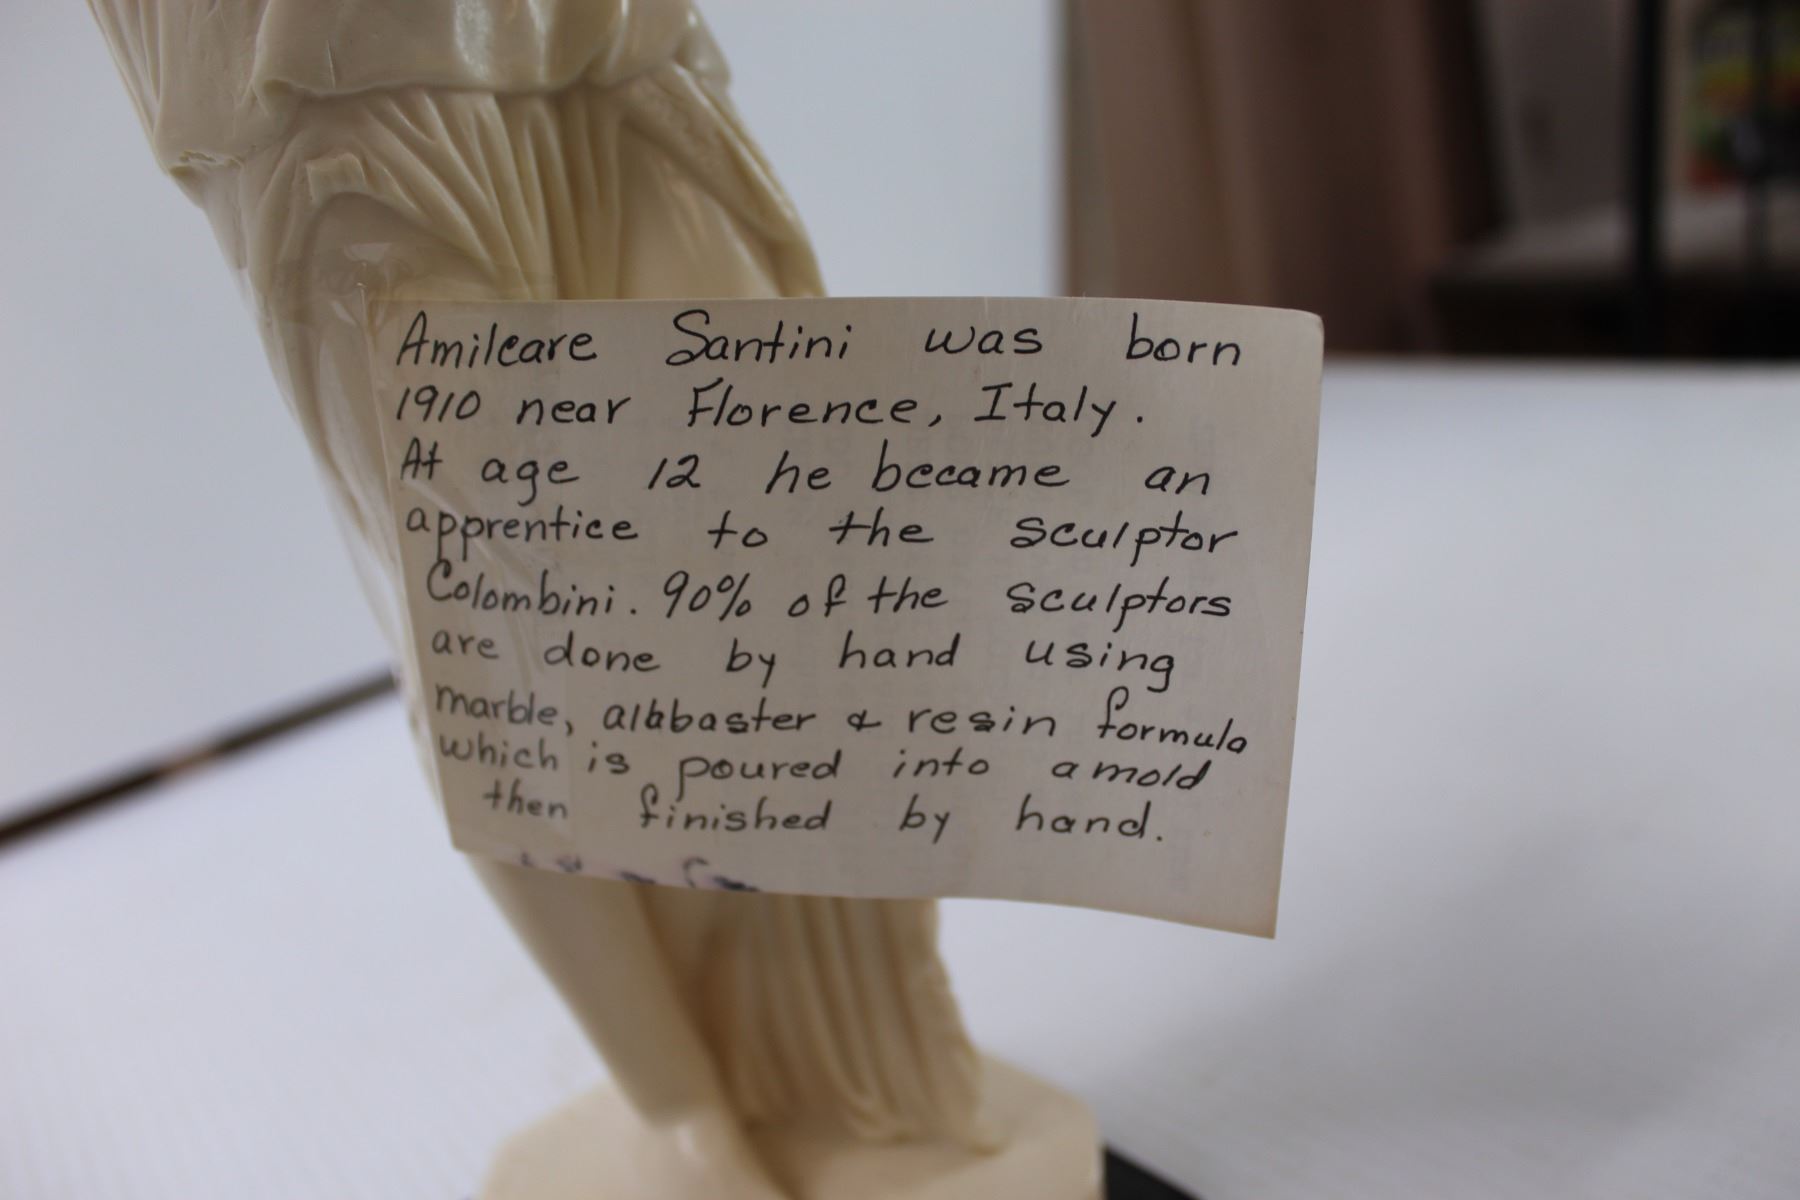 Amilcare Santini was born
1910 near Florence, Italy.
At age 12 he became an
apprentice to the sculptor
Colombini. 90% of the sculptors
are done by hand using
marble, alabbaster & resin formula
which is poured into a mold
then finished by hand.